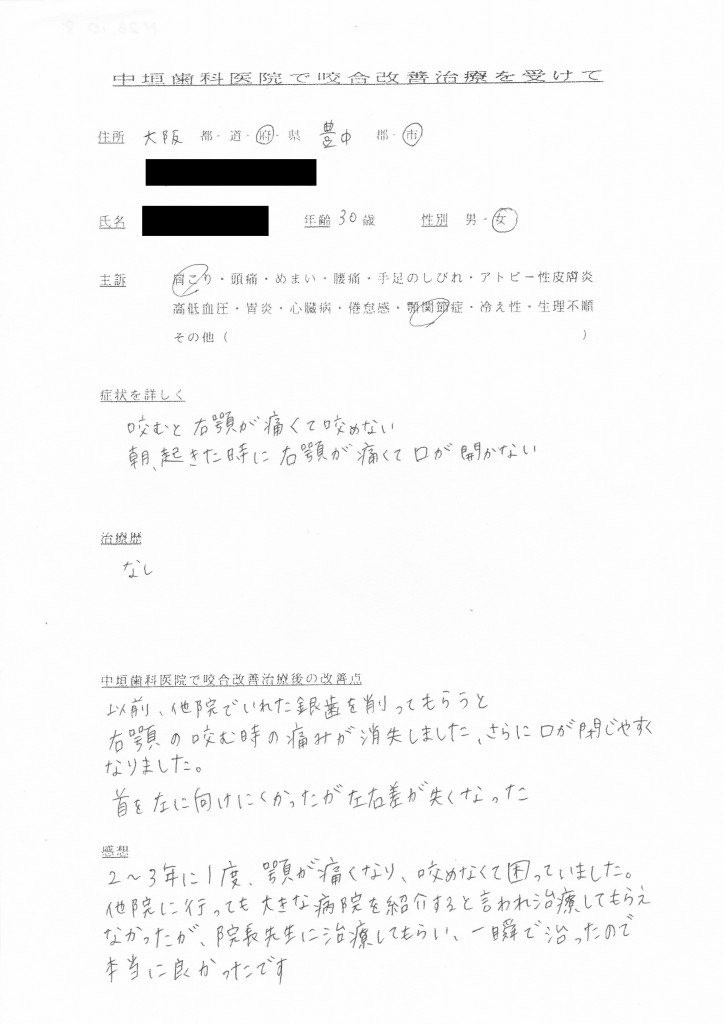 中垣歯科医院で咬合改善治療を受けて
住所 大阪 都・道・府・県 豊中 郡・市
氏名 年齢 30歳 性別 男・女
主訴 肩こり・頭痛・めまい・腰痛・手足のしびれ・アトピー性皮膚炎
高低血圧・胃炎・心臓病・倦怠感・顎関節症・冷え性・生理不順
その他( )
症状を詳しく
咬むと右顎が痛くて咬めない
朝、起きた時に右顎が痛くて口が開かない
治療歴
なし
中垣歯科医院で咬合改善治療後の改善点
以前、他院でいれた銀歯を削ってもらうと
右顎の咬む時の痛みが消失しました、さらに口が閉じやすく
なりました。
首を左に向けにくかったが左右差が失くなった
感想
2～3年に1度、顎が痛くなり、咬めなくて困っていました。
他院に行っても大きな病院を紹介すると言われ治療してもらえ
なかったが、院長先生に治療してもらい、一瞬で治ったので
本当に良かったです